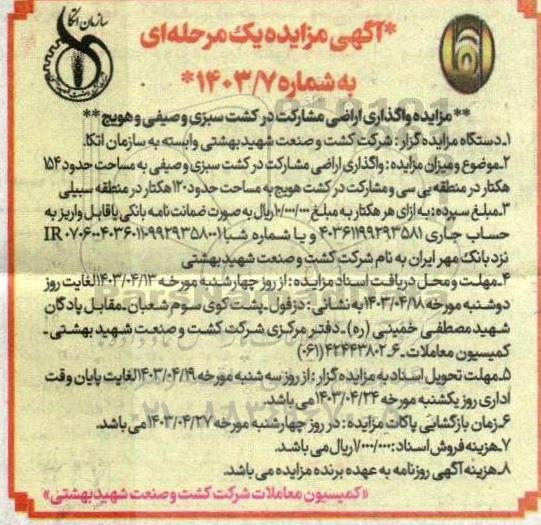 سازمان اتکا
*آگهی مزایده یک مرحله‌ای
به شماره ۱۴۰۳/۷*
**مزایده واگذاری اراضی مشارکت در کشت سبزی وصیفی و هویج**
۱ـ دستگاه مزایده گزار: شرکت کشت و صنعت شهید بهشتی وابسته به سازمان اتکا.
۲ـ موضوع و میزان مزایده: واگذاری اراضی مشارکت در کشت سبزی وصیفی به مساحت حدود ۱۵۴
هکتار در منطقه بی سی و مشارکت در کشت هویج به مساحت حدود ۱۲۰ هکتار در منطقه سبیلی
۳ـ مبلغ سپرده: به ازای هر هکتار به مبلغ ۱۰/۰۰۰/۰۰۰ ریال به صورت ضمانت نامه بانکی یا قابل واریز به
حساب جاری ۴۰۳۶۱۱۹۹۲۹۳۵۸۱ و یا شماره شبا IR ۰۷۰۶۰۰۴۰۳۶۰۱۱۰۹۹۲۹۳۵۸۰۰۱
نزد بانک مهر ایران به نام شرکت کشت و صنعت شهید بهشتی
۴ـ مهلت و محل دریافت اسناد مزایده: از روز چهارشنبه مورخه ۱۴۰۳/۰۴/۱۳ لغایت روز
دوشنبه مورخه ۱۴۰۳/۰۴/۱۸ به نشانی: دزفول ـ پشت کوی سوم شعبان ـ مقابل پادگان
شهید مصطفی خمینی (ره) ـ دفتر مرکزی شرکت کشت و صنعت شهید بهشتی ـ
کمیسیون معاملات ـ ۶ـ۴۲۴۴۳۸۰۲ (۰۶۱)
۵ـ مهلت تحویل اسناد به مزایده گزار: از روز سه شنبه مورخ ۱۴۰۳/۰۴/۱۹ لغایت پایان وقت
اداری روز یکشنبه مورخه ۱۴۰۳/۰۴/۲۴ می باشد.
۶ـ زمان بازگشایی پاکات مزایده: در روز چهارشنبه مورخه ۱۴۰۳/۰۴/۲۷ می باشد.
۷ـ هزینه فروش اسناد: ۷/۰۰۰/۰۰۰ ریال می باشد.
۸ـ هزینه آگهی روزنامه به عهده برنده مزایده می باشد.
«کمیسیون معاملات شرکت کشت و صنعت شهید بهشتی»